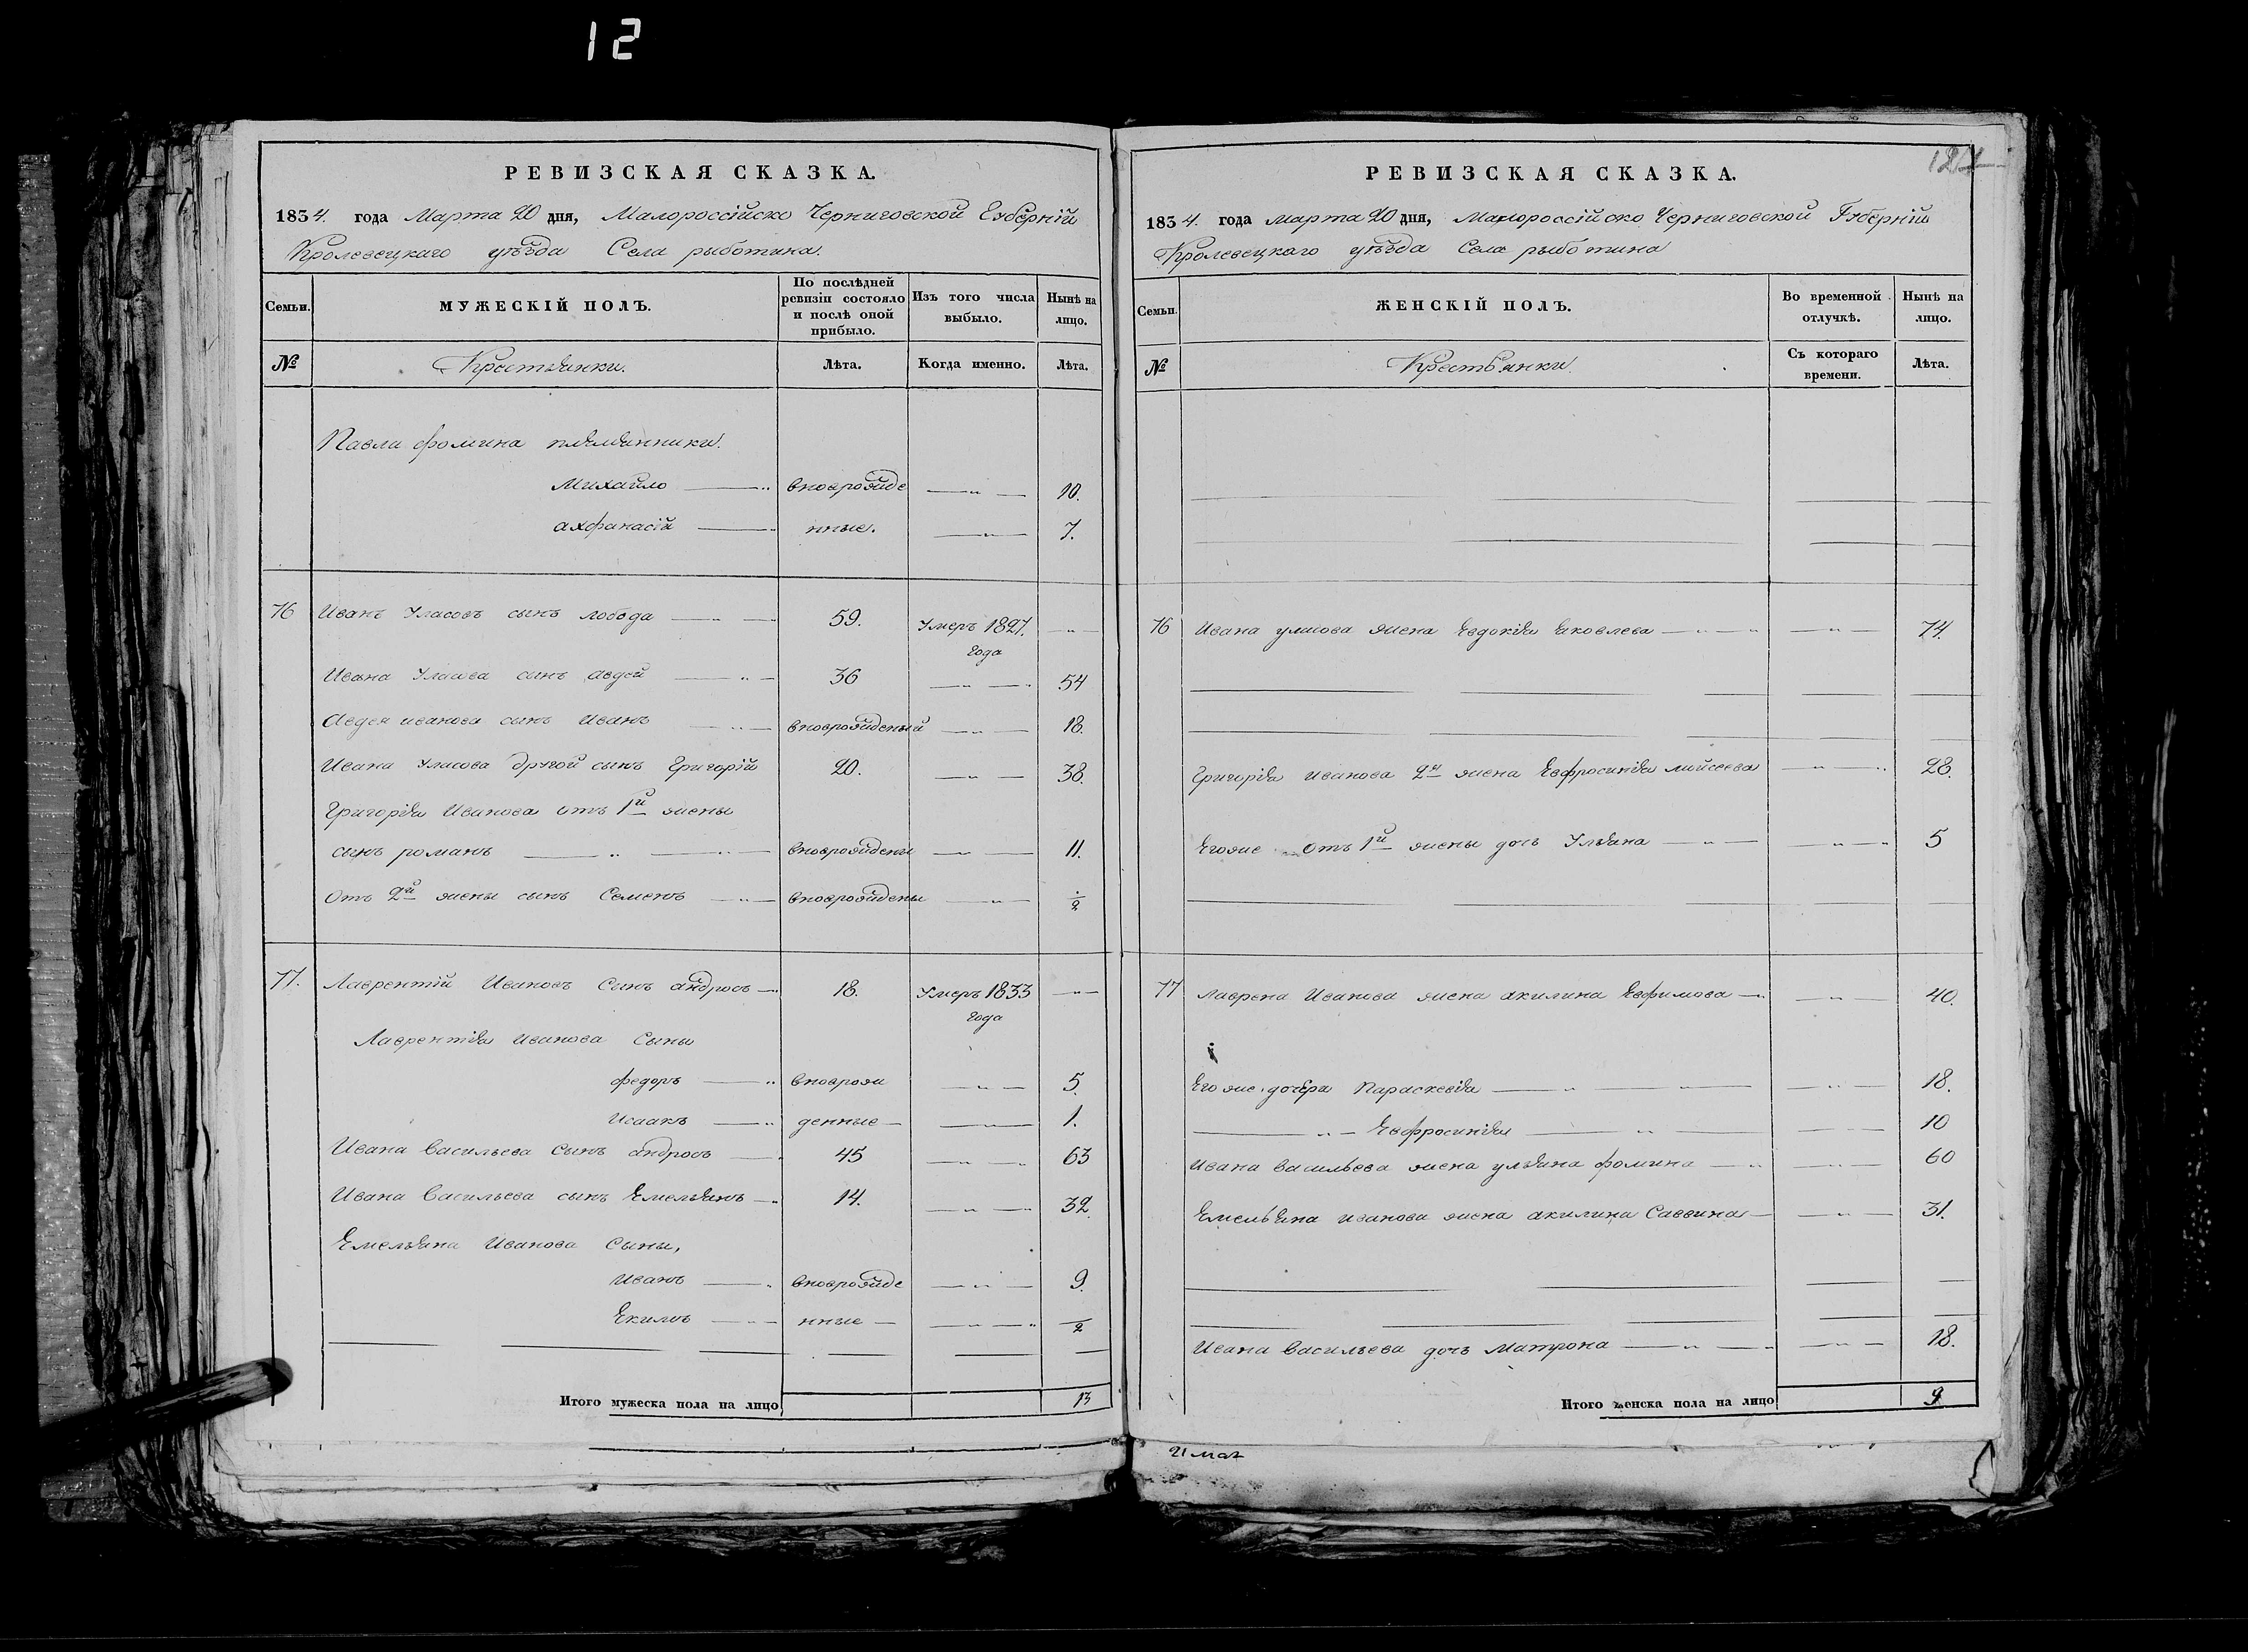 12
РЕВИЗСКАЯ СКАЗКА.
1834. года Марта 20 дня, Малороссійско Черниговской Губерніи
Кролевецкаго уѣзда Села рыботина.
Семьи. МУЖЕСКІЙ ПОЛЪ. По послѣдней ревизіи состояло и послѣ оной прибыло. Изъ того числа выбыло. Нынѣ на лицо.
№ Лѣта. Когда именно. Лѣта.
Павла фомина племянники.
Михайло вноврожде 10.
афанасій нные. 7.
76 Иванъ Уласовъ сынъ лобода 59. Умеръ 1827. года
Ивана Уласова сынъ авдей 36 54
Авдея иванова сынъ Иванъ вноврожденый 18.
Ивана Уласова другой сынъ Григорій 20. 38.
Григорія Иванова отъ 1й жены
сынъ романъ вноврожденъ 11.
Отъ 2й жены сынъ Семенъ вноврожденъ 1/2
77. Лаврентій Ивановъ Сынъ андросъ 18. Умеръ 1833 года
Лаврентія Иванова Сыны
федоръ вноврож 5.
Исаакъ денные 1.
Ивана Васильева Сынъ андросъ 45 63
Ивана Васильева сынъ Емельянъ 14. 32.
Емельяна Иванова Сыны,
Иванъ вноврожде 9.
Екимъ нные 1/2
Итого мужеска пола на лицо 13
РЕВИЗСКАЯ СКАЗКА.
1834. года марта 20 дня, Малороссійско Черниговской Губерніи
Кролевецкаго уѣзда Села рыботина
Семьи. ЖЕНСКІЙ ПОЛЪ. Во временной отлучкѣ. Нынѣ на лицо.
№ Крестьянки. Съ котораго времени. Лѣта.
76 Ивана уласова жена Евдокія яковлева 74.
Григорія иванова 2я жена Евфросинія мойсеева 28.
Егоже отъ 1й жены дочь Ульяна 5
77 Лаврена Иванова жена акилина Евфимова 40.
Егоже дочеря Параскевія 18.
Евфросинія 10
Ивана Васильева жена ульяна фомина 60
Емельяна иванова жена акилина Саввина 31.
Ивана Васильева дочь Матрона 18.
Итого женска пола на лицо 9